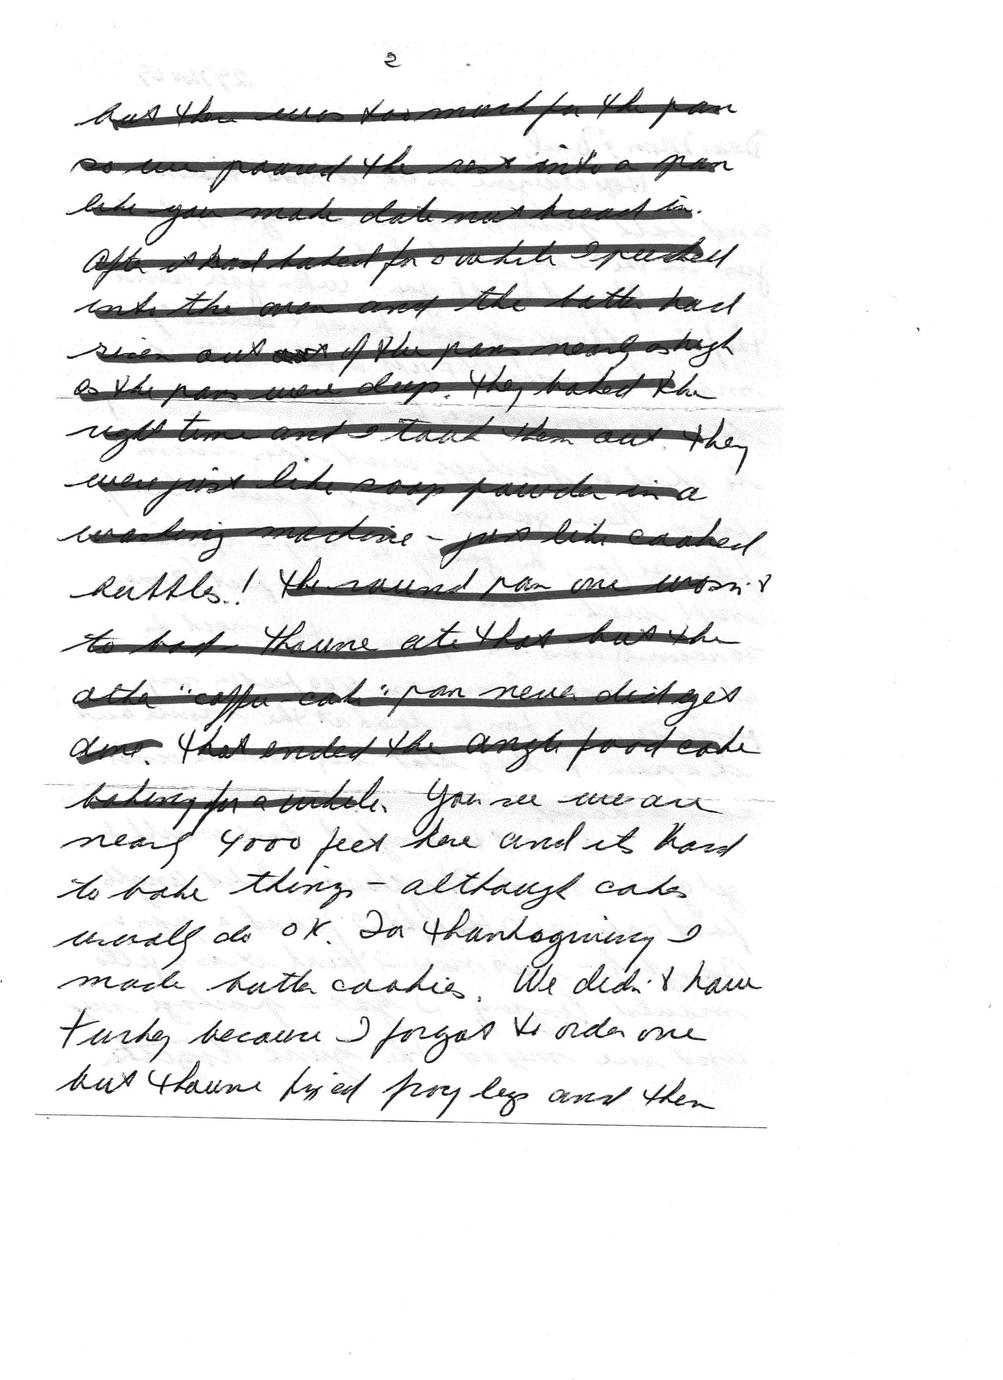 2
but there was too much for the pan
so we poured the rest into a pan
like you make date nut bread in.
After it had baked for a while I peeked
into the oven and the batter had
risen out of the pans nearly as high
as the pans were deep. They baked the
right time and I took them out. They
were just like soap powder in a
washing machine - just like cooked
bubbles! The round pan one wasn't
to bad - ate that but the
other "coffee cake" pan never did get
done. That ended the angle food cake
baking for a while. You see we are
nearly 4000 feet here and its hard
to bake things - although cakes
usually do OK. For Thanksgiving I
made butter cookies. We didn't have
turkey because I forgot to order one
but fried frog legs and then